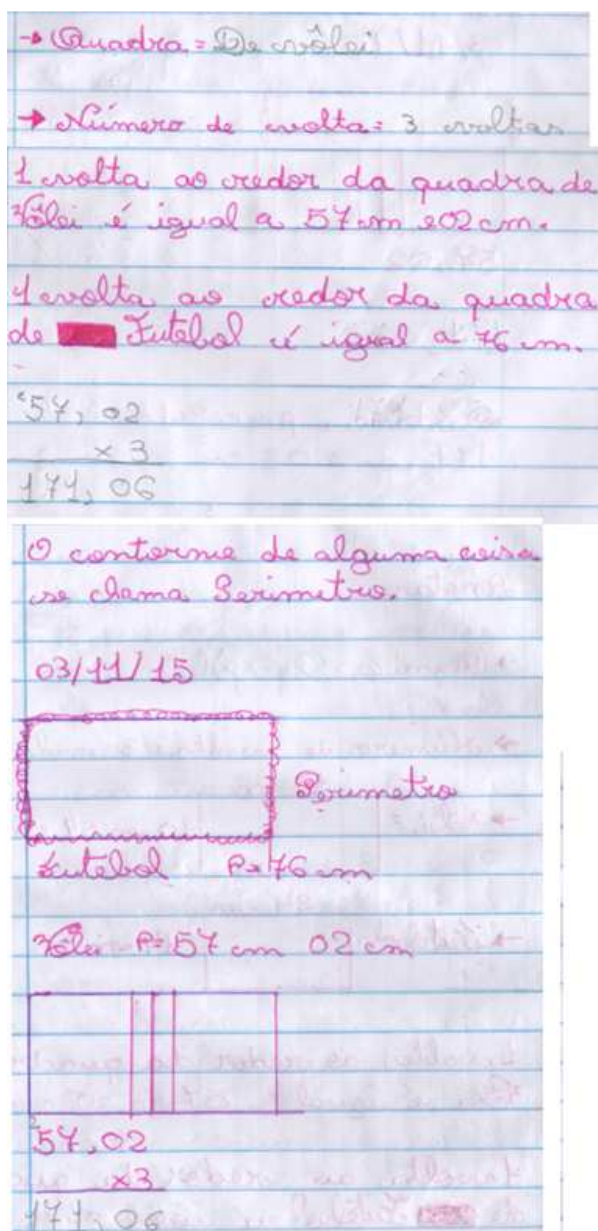 → Quadra = De vôlei
→ Número de volta: 3 voltas
1 volta ao redor da quadra de
Vôlei é igual a 57 m e 02 cm.
1 volta ao redor da quadra
de Futebol é igual a 76 m.
57,02
x 3
171,06
O contorno de alguma coisa
se chama Perimetro.
03/11/15
Perimetro
Futebol P=76 m
Vôlei P=57 m 02 cm
2
57,02
x3
171,06